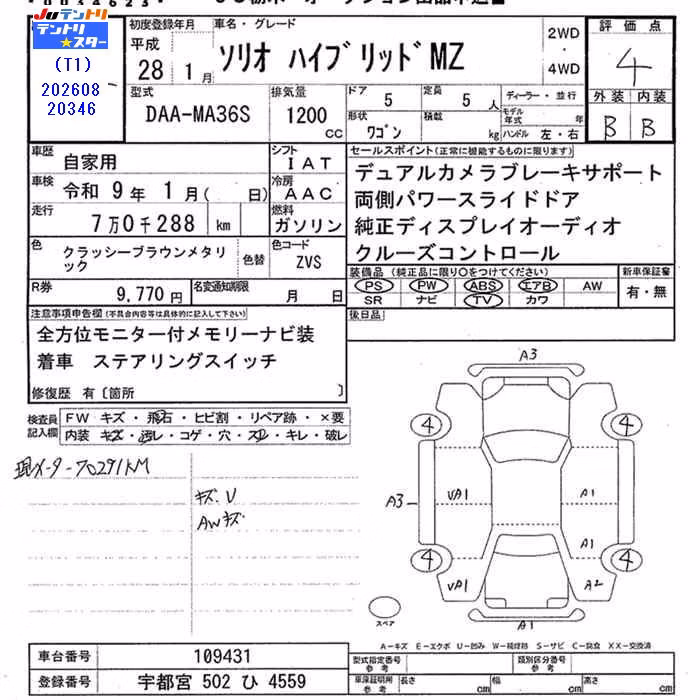 JU テントリ
テントリ★スター
(T1)
202608
20346
初度登録年月
平成
28 1月
車名・グレード
ソリオ ハイブリッドMZ
2WD
・
4WD
評価点
4
外装 内装
B B
型式
DAA-MA36S
排気量
1200
cc
ドア
5
定員
5 人
形状
ワゴン
積載
kg
ディーラー・並行
モデル年式 年
ハンドル 左・右
車歴
自家用
車検
令和 9年 1月( 日)
走行
7万0千288 km
シフト
IAT
冷房
AAC
燃料
ガソリン
色
クラッシーブラウンメタリック
色替
色コード
ZVS
R券
9,770円
名変通知期限
月 日
セールスポイント(正常に機能するものに限ります)
デュアルカメラブレーキサポート
両側パワースライドドア
純正ディスプレイオーディオ
クルーズコントロール
装備品(純正品に限り○をつけてください)
PS PW ABS エアB AW
SR ナビ TV カワ
新車保証書
有・無
後日品
注意事項申告欄(不具合内容等は具体的に記入して下さい)
全方位モニター付メモリーナビ装
着車 ステアリングスイッチ
修復歴 有〔箇所 〕
検査員記入欄
FW キズ・飛石・ヒビ割・リペア跡・×要
内装 キズ・汚レ・コゲ・穴・スレ・キレ・破レ
現メーター70291KM
キズ、U
AWキズ
A3
4
4
A3
VA1
A1
A1
VA1
A2
4
4
A1
スペア
A-キズ E-エクボ U-凹み W-補修跡 S-サビ C-腐食 XX-交換済
車台番号
109431
登録番号
宇都宮 502 ひ 4559
型式指定番号
参考
類別区分番号
参考
車庫証明用
参考
長さ cm
幅 cm
高さ cm